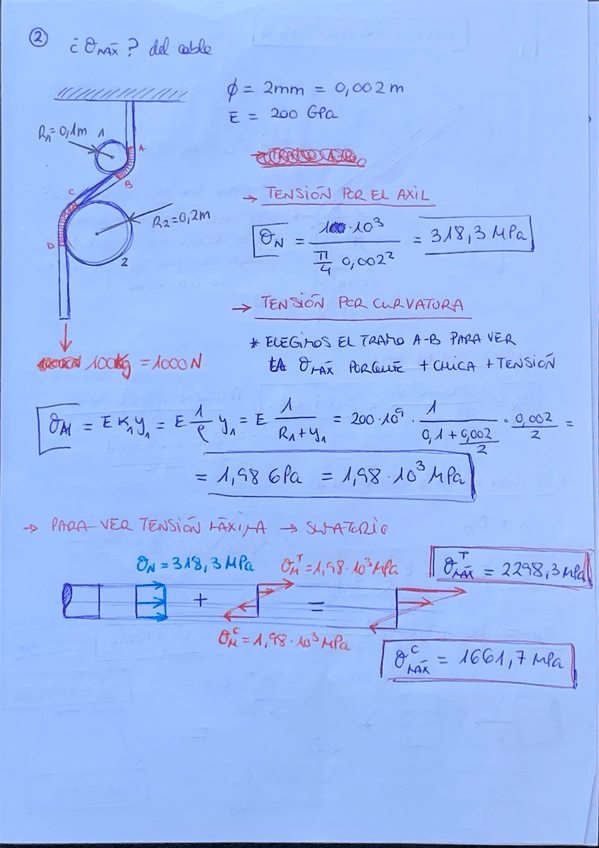 ② ¿σMÁX? del cable
ϕ = 2mm = 0,002 m
E = 200 GPa
R1=0,1m 1
A
B
C
D
R2=0,2m
2
100kg = 1000N
→ TENSIÓN POR EL AXIL
σN = 1·10³ / (π/4 0,002²) = 318,3 MPa
→ TENSIÓN POR CURVATURA
* ELEGIMOS EL TRAMO A-B PARA VER
LA σMÁX PORQUE + CHICA + TENSIÓN
σM = E K1 y1 = E 1/ρ y1 = E 1/(R1+y1) = 200·10⁹ · 1/(0,1+0,002/2) · 0,002/2 =
= 1,98 GPa = 1,98·10³ MPa
→ PARA VER TENSIÓN MÁXIMA → SUMATORIO
σN = 318,3 MPa
σMᵀ = 1,98·10³ MPa
+
=
σMᶜ = 1,98·10³ MPa
σMÁXᵀ = 2298,3 MPa
σMÁXᶜ = 1661,7 MPa